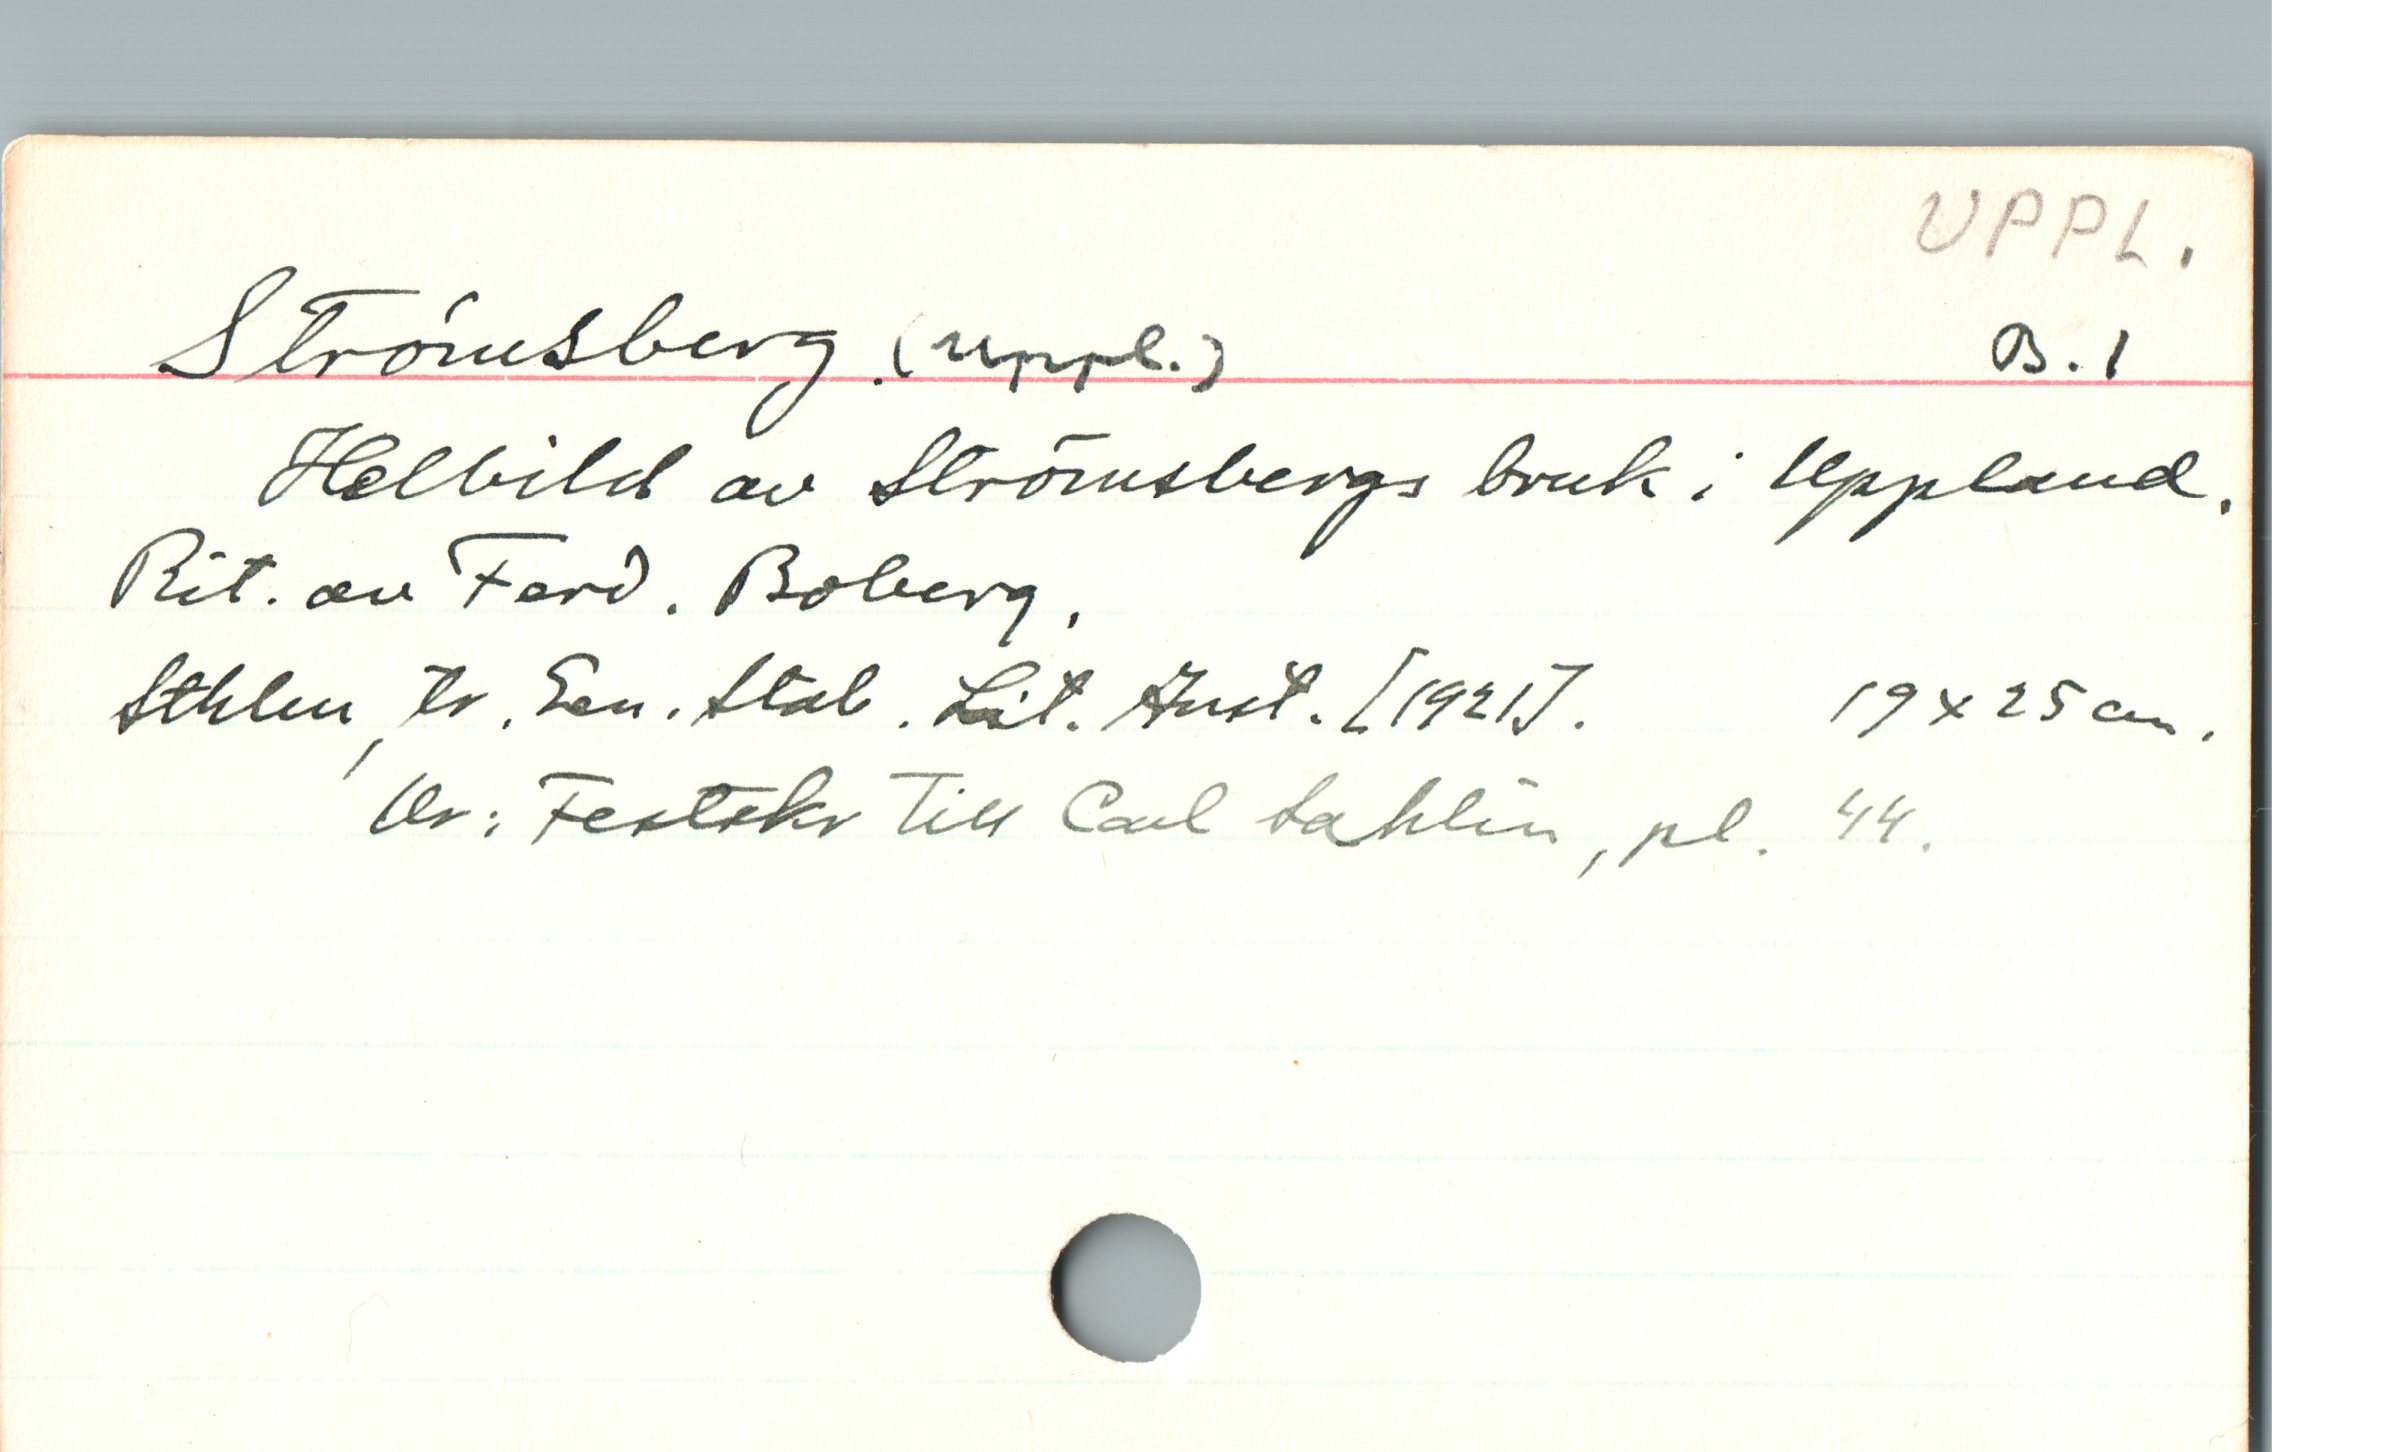 UPPL.
Strömsberg. (Uppl.) B. 1
Helbild av Strömsbergs bruk i Uppland.
Rit. av Ferd. Boberg.
Sthlm, tr. Gen. Stab. Lit. Anst. [1921]. 19 x 25 cm.
Ur: Festskr till Carl Sahlin, pl. 44.